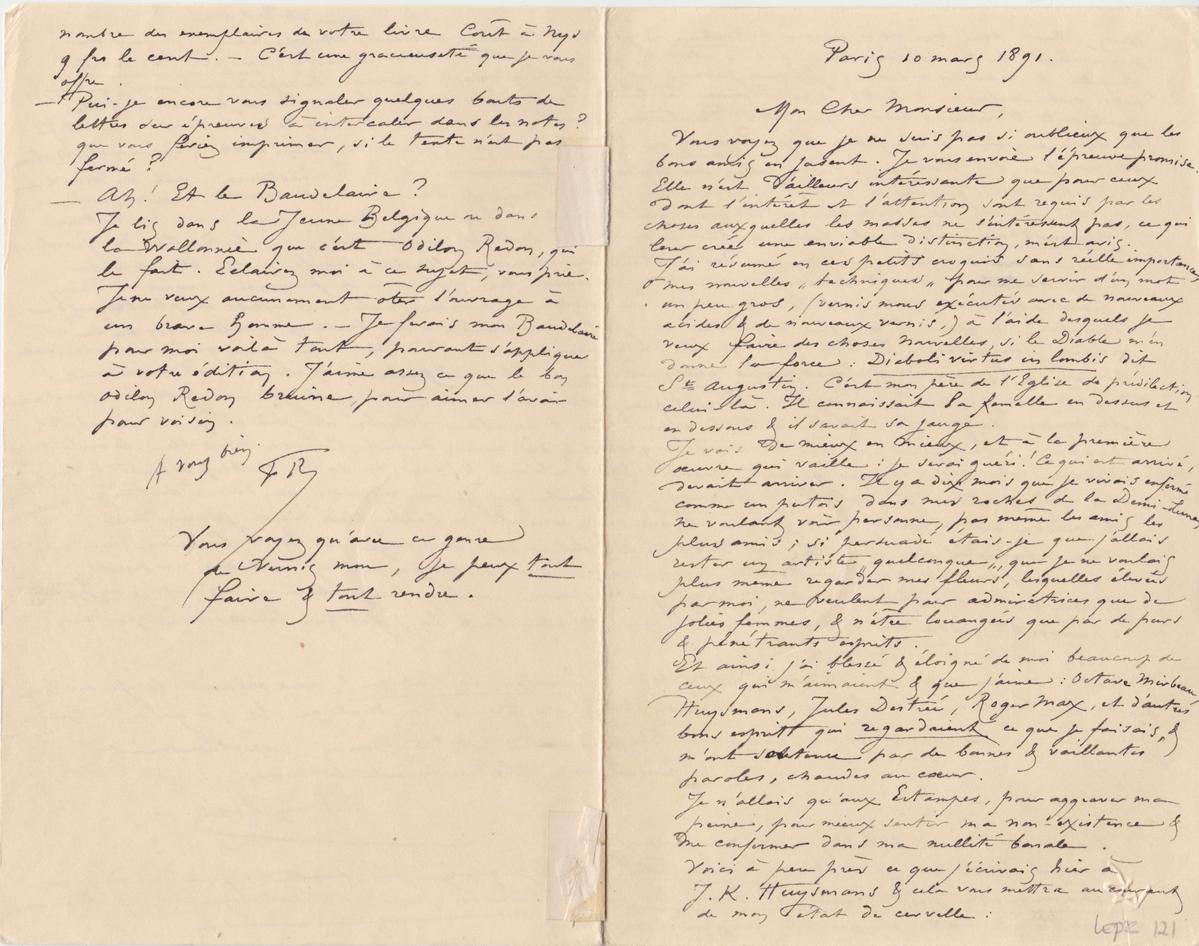 Paris 10 mars 1891.
Mon Cher Monsieur,
Vous voyez que je ne suis pas si oublieux que les
bons amis en jasent. Je vous envoie l'épreuve promise.
Elle n'est d'ailleurs intéressante que pour ceux
dont l'intérêt et l'attention sont requis par les
choses auxquelles les masses ne s'intéressent pas, ce qui
leur crée une enviable distinction, m'est avis.
J'ai résumé en ces petits croquis sans réelle importance
mes nouvelles „techniques" pour me servir d'un mot
un peu gros, (vernis mous exécutés avec de nouveaux
acides & de nouveaux vernis,) à l'aide desquels je
veux faire des choses nouvelles, si le Diable m'en
donne la force : Diaboli virtus in lombis dit
St Augustin. C'est mon père de l'Eglise de prédilection
celui là. Il connaissait la femelle en dessus et
en dessous & il savait sa jauge.
Je vais de mieux en mieux, et à la première
œuvre qui vaille : je serai guéri! Ce qui est arrivé,
devait arriver. Il y a dix mois que je vivais enfermé
comme un putois dans mes roches de la Demi-Lune
ne voulant voir personne, pas même les amis les
plus amis ; si persuadé étais-je que j'allais
rester un artiste „quelconque", que je ne voulais
plus même regarder mes fleurs, lesquelles élevées
par moi, ne veulent pour admiratrices que de
jolies femmes, & n'être louangées que par de purs
& pénétrants esprits.
Et ainsi j'ai blessé & éloigné de moi beaucoup de
ceux qui m'aimaient & que j'aime : Octave Mirbeau
Huysmans, Jules Destrée, Roger Marx, et d'autres
bons esprits qui regardaient ce que je faisais, &
m'ont soutenu par de bonnes & vaillantes
paroles, chaudes au cœur.
Je n'allais qu'aux Estampes, pour aggraver ma
peine, pour mieux sentir ma non-existence &
me confirmer dans ma nullité banale.
Voici à peu près ce que j'écrivais hier à
J.K. Huysmans & cela vous mettra au courant
de mon état de cervelle :
LEpr 121
nombre des exemplaires de votre livre Coût à Nys
9 frs le cent. – C'est une gracieuseté que je vous
offre.
– Puis-je encore vous signaler quelques bouts de
lettres sur épreuves à intercaler dans les notes?
que vous feriez imprimer, si le texte n'est pas
fermé?
– Ah! Et le Baudelaire?
Je lis dans la Jeune Belgique ou dans
la Wallonnie que c'est Odilon Redon, qui
le fait. Eclairez moi à ce sujet, vous prie.
Je ne veux aucunement ôter l'ouvrage à
un brave homme. – Je ferais mon Baudelaire
pour moi voilà tout, pouvant s'appliquer
à votre édition. J'aime assez ce que le bon
Odilon Redon bruine, pour aimer l'avoir
pour voisin.
A vous bien
FR
Vous voyez qu'avec ce genre
de Vernis mou, je peux tout
faire & tout rendre.